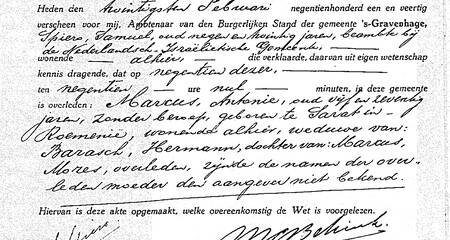 Heden den twintigsten Februari negentienhonderd een en veertig
verscheen voor mij, Ambtenaar van den Burgerlijken Stand der gemeente 's-Gravenhage,
Spiero, Samuel, oud negen en twintig jaren, beambte bij
de Nederlandsch-Israëlietische Gemeente,
wonende alhier, die verklaarde, daarvan uit eigen wetenschap
kennis dragende, dat op negentien dezer,
ten negentien ure nul minuten, in deze gemeente
is overleden: Marcus, Antonie, oud vijf en zeventig
jaren, zonder beroep, geboren te Tarat in
Roemenië, wonende alhier, weduwe van:
Barasch, Hermann, dochter van: Marcus,
Mozes, overleden, zijnde de namen der over-
leden moeder den aangever niet bekend.
Hiervan is deze akte opgemaakt, welke overeenkomstig de Wet is voorgelezen.